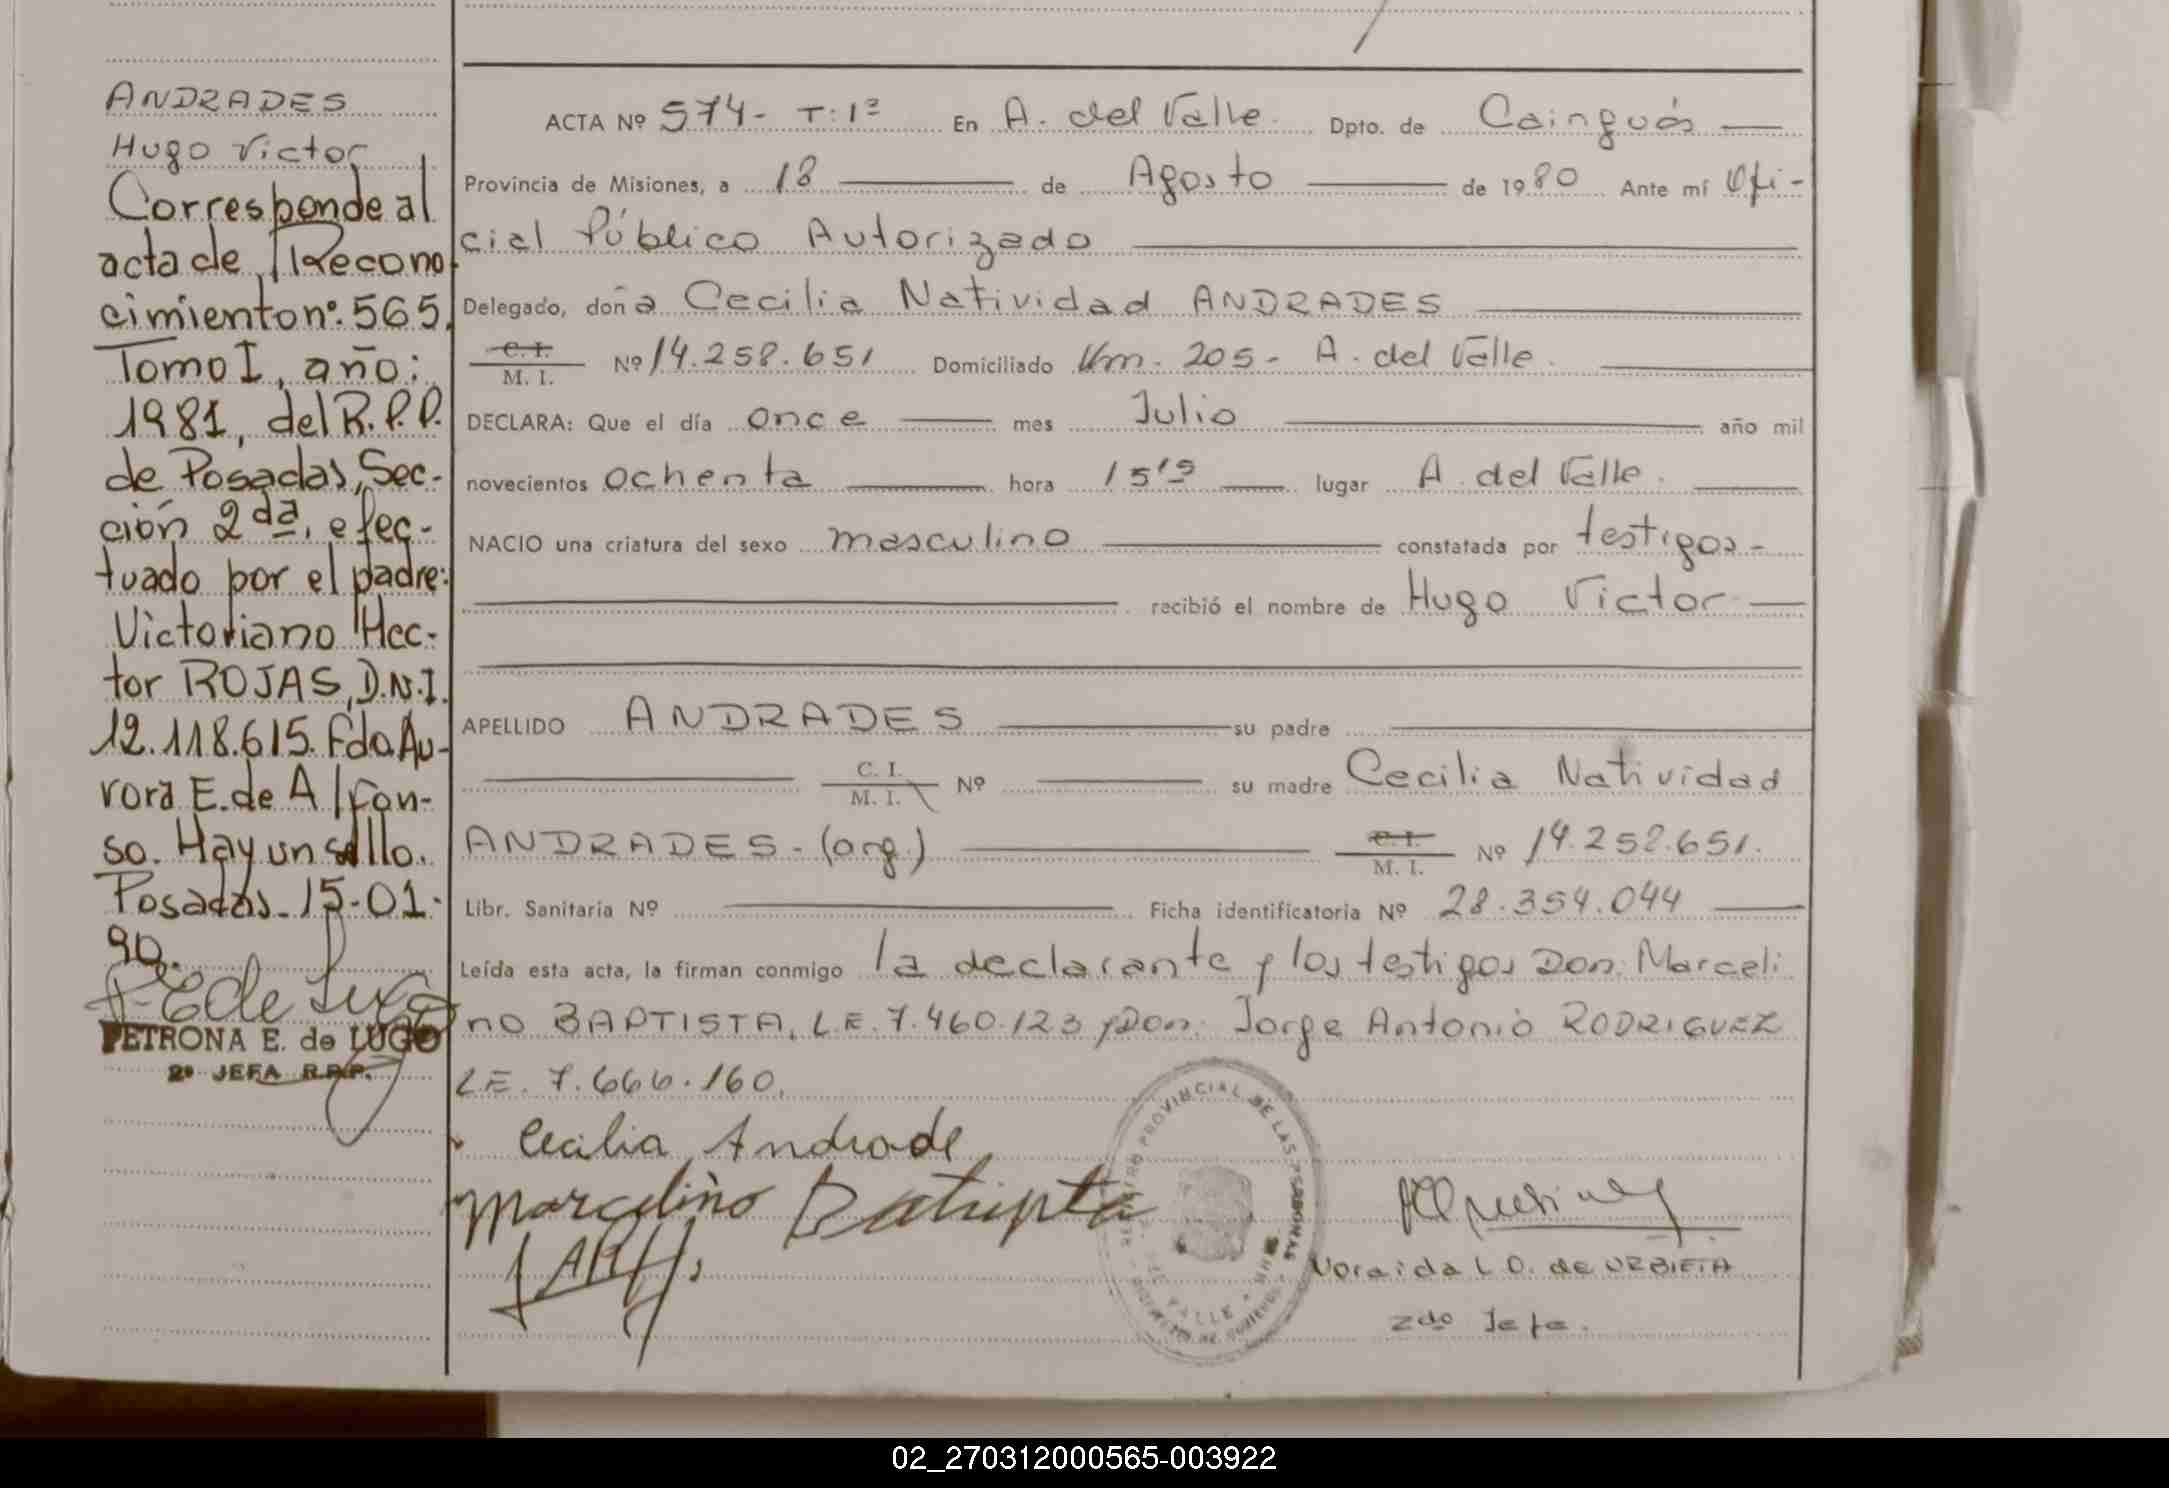 ANDRADES
Hugo Victor
Corresponde al
acta de Recono
cimiento nº. 565,
Tomo I, año:
1981, del R.P.P.
de Posadas, Sec-
ción 2da, efec-
tuado por el padre:
Victoriano Hec-
tor ROJAS, D.N.I.
12.118.615. Fdo. Au-
rora E. de Alfon-
so. Hay un sello.
Posadas, 15-01-
90.
PETRONA E. de LUGO
2º JEFA R.P.P.
ACTA Nº 574- T:1º En A. del Valle. Dpto. de Cainguás
Provincia de Misiones, a 18 de Agosto de 1980 Ante mí Ofi-
cial Público Autorizado
Delegado, doña Cecilia Natividad ANDRADES
C. I.
M. I. Nº 14.258.651 Domiciliado Km. 205- A. del Valle.
DECLARA: Que el día once mes Julio año mil
novecientos ochenta hora 15 15 lugar A. del Valle.
NACIO una criatura del sexo masculino constatada por testigos-
recibió el nombre de Hugo Victor
APELLIDO ANDRADES su padre
C. I.
M. I. Nº su madre Cecilia Natividad
ANDRADES- (arg.) C. I.
M. I. Nº 14.258.651.
Libr. Sanitaria Nº Ficha identificatoria Nº 28.354.044
Leída esta acta, la firman conmigo la declarante y los testigos Don: Marceli
no BAPTISTA, L.E. 7.460.123 y Don: Jorge Antonio RODRIGUEZ
LE. 7.666.160.
Cecilia Andrade
Marcelino Batripta
REGISTRO PROVINCIAL DE LAS PERSONAS
VALLE
Noraida L. O. de URBIETA
2do Jefe.
02_270312000565-003922